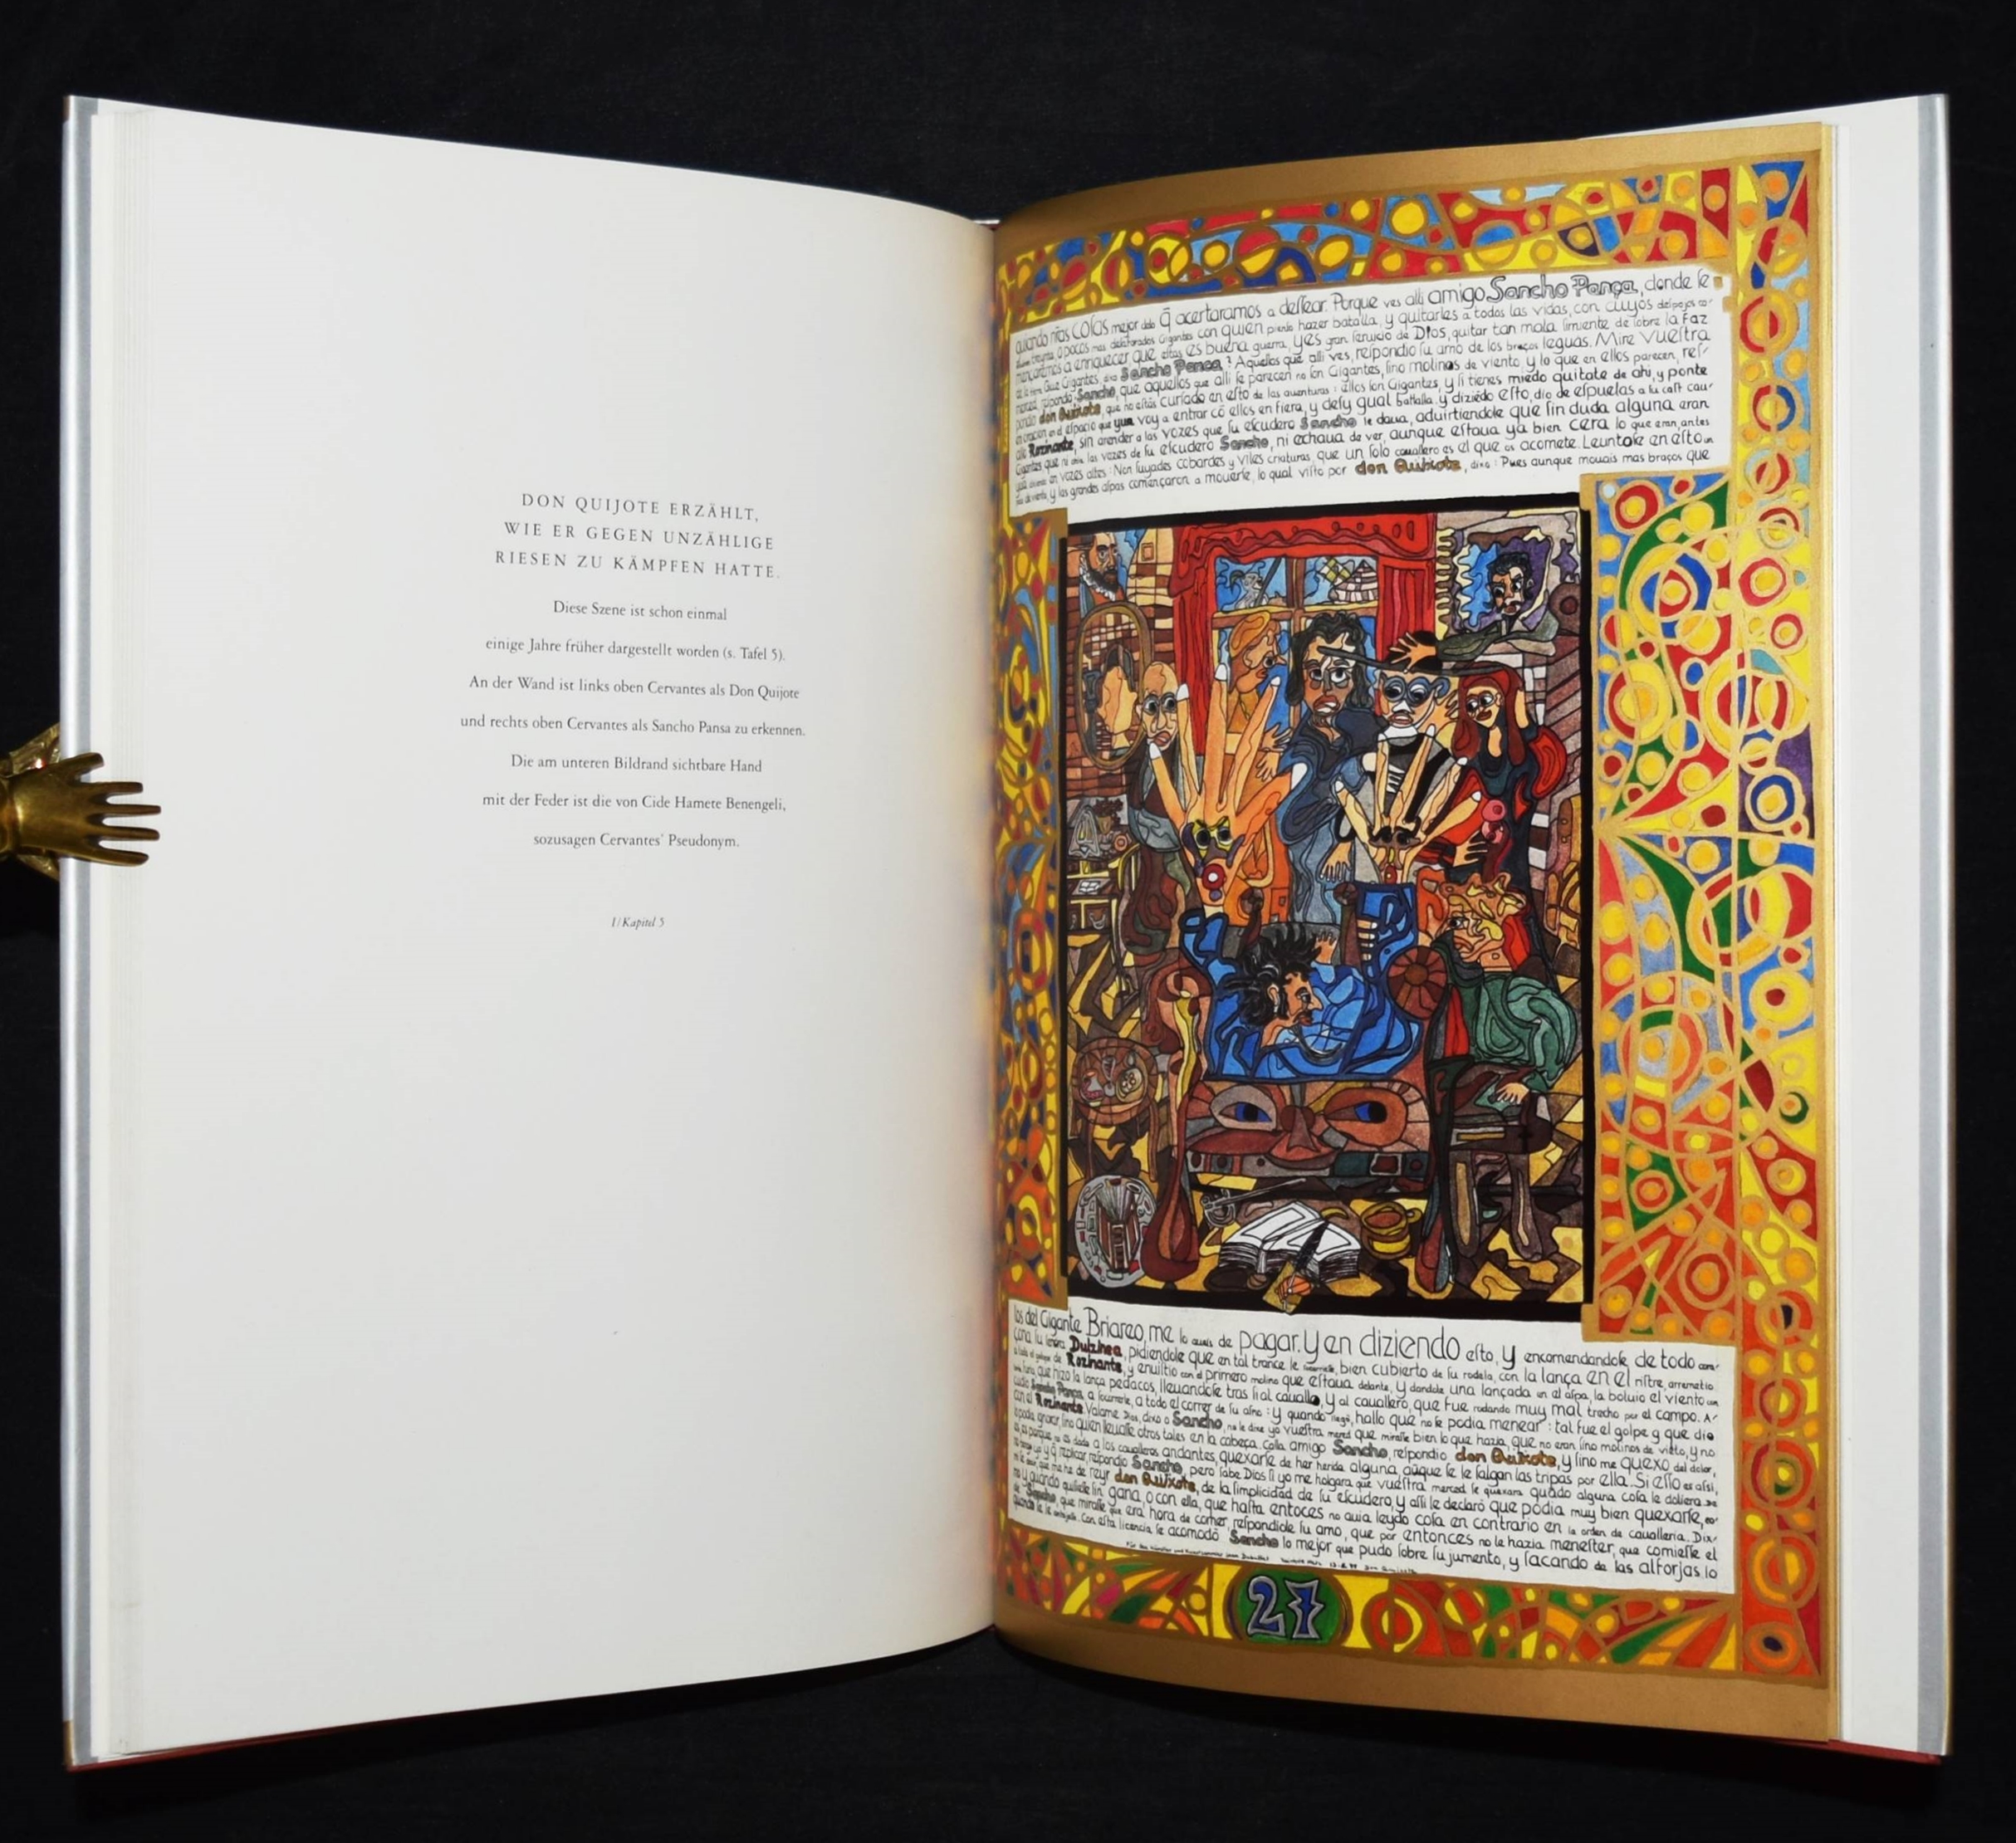 DON QUIJOTE ERZÄHLT,
WIE ER GEGEN UNZÄHLIGE
RIESEN ZU KÄMPFEN HATTE.
Diese Szene ist schon einmal
einige Jahre früher dargestellt worden (s. Tafel 5).
An der Wand ist links oben Cervantes als Don Quijote
und rechts oben Cervantes als Sancho Pansa zu erkennen.
Die am unteren Bildrand sichtbare Hand
mit der Feder ist die von Cide Hamete Benengeli,
sozusagen Cervantes' Pseudonym.
I/Kapitel 5
colas mejor q̃ acertaramos a deſſear. Porque ves alli amigo Sancho Pança, donde ſe
Gigantes con quien hazer batalla, y quitarles a todos las vidas, con cuyos
a enriquecer que es buena guerra, y es gran ſeruicio de Dios, quitar tan mala ſimiente de ſobre la faz
Sancho Pança? Aquellos que alli ves, reſpondio ſu amo de los braços leguas. Mire vueſtra
Sancho, que aquellos que alli ſe parecen no ſon Gigantes, ſino molinos de viento, y lo que en ellos parecen, reſ-
don Quixote, que no eſtàs curſado en eſto de las auenturas: ellos ſon Gigantes, y ſi tienes miedo quitate de ahi, y ponte
en el eſpacio que yua voy a entrar cõ ellos en fiera, y deſygual batalla. y diziẽdo eſto, dio de eſpuelas a ſu
Rozinante, ſin atender a las vozes que ſu eſcudero Sancho le daua, aduirtiendole que ſin duda alguna eran
las vozes de ſu eſcudero Sancho, ni echaua de ver, aunque eſtaua ya bien cera lo que eran, antes
en vozes altas: Non fuyades cobardes y viles criaturas, que un ſolo cauallero es el que os acomete. Leuntoſe en eſto un
y las grandes aſpas començaron a mouerſe, lo qual viſto por don Quixote, dixo: Pues aunque mouais mas braços que
los del Gigante Briareo, me lo aueis de pagar. Y en diziendo eſto, y encomendandoſe de todo
Dulzinea, pidiendole que en tal trance le bien cubierto de ſu rodela, con la lança en el riſtre, arremetio
de Rozinante, y enuiſtio con el primero molino que eſtaua delante, y dandole una lançada en el aſpa, la boluio el viento con
que hizo la lança pedaços, lleuandoſe tras ſi al cauallo, y al cauallero, que fue rodando muy mal trecho por el campo. A-
Sancho Pança, a ſocorrerle, a todo el correr de ſu aſno: y quando llegò, hallo que no ſe podia menear: tal fue el golpe y que dio
con el Rozinante. Valame Dios, dixo Sancho, no le dixe yo vueſtra merced que miraſſe bien lo que hazia, que no eran ſino molinos de viẽto, y no
quien lleuaſſe otros tales en la cabeça. Calla amigo Sancho, reſpondio don Quixote, y ſino me quexo del dolor,
a los caualleros andantes, quexarſe de herida alguna, aũque ſe le ſalgan las tripas por ella. Si eſſo es aſsi,
replicar, reſpondio Sancho, pero ſabe Dios ſi yo me holgara que vueſtra merced ſe quexara quãdo alguna coſa le doliera.
que me he de don Quixote, de la ſimplicidad de ſu eſcudero, y aſſi le declarò que podia muy bien quexarſe,
y quando ſin gana, o con ella, que haſta entoces no auia leydo coſa en contrario en la orden de caualleria. Dix-
Sancho, que miraſſe que era hora de comer, reſpondiole ſu amo, que por entonces no le hazia meneſter, que comieſſe el
Con eſta licencia ſe acomodò Sancho lo mejor que pudo ſobre ſu jumento, y ſacando de las alforjas lo
27